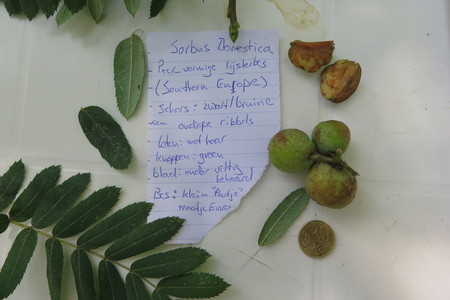 Sorbus Domestica
- Peer-vormige lijsterbes
- (Southern Europe)
- Schors: zwart/bruine
ribbels
- loten: met haar
- knoppen: groen
- blad: onder viltig
behaard
Bes: klein "Peertje"